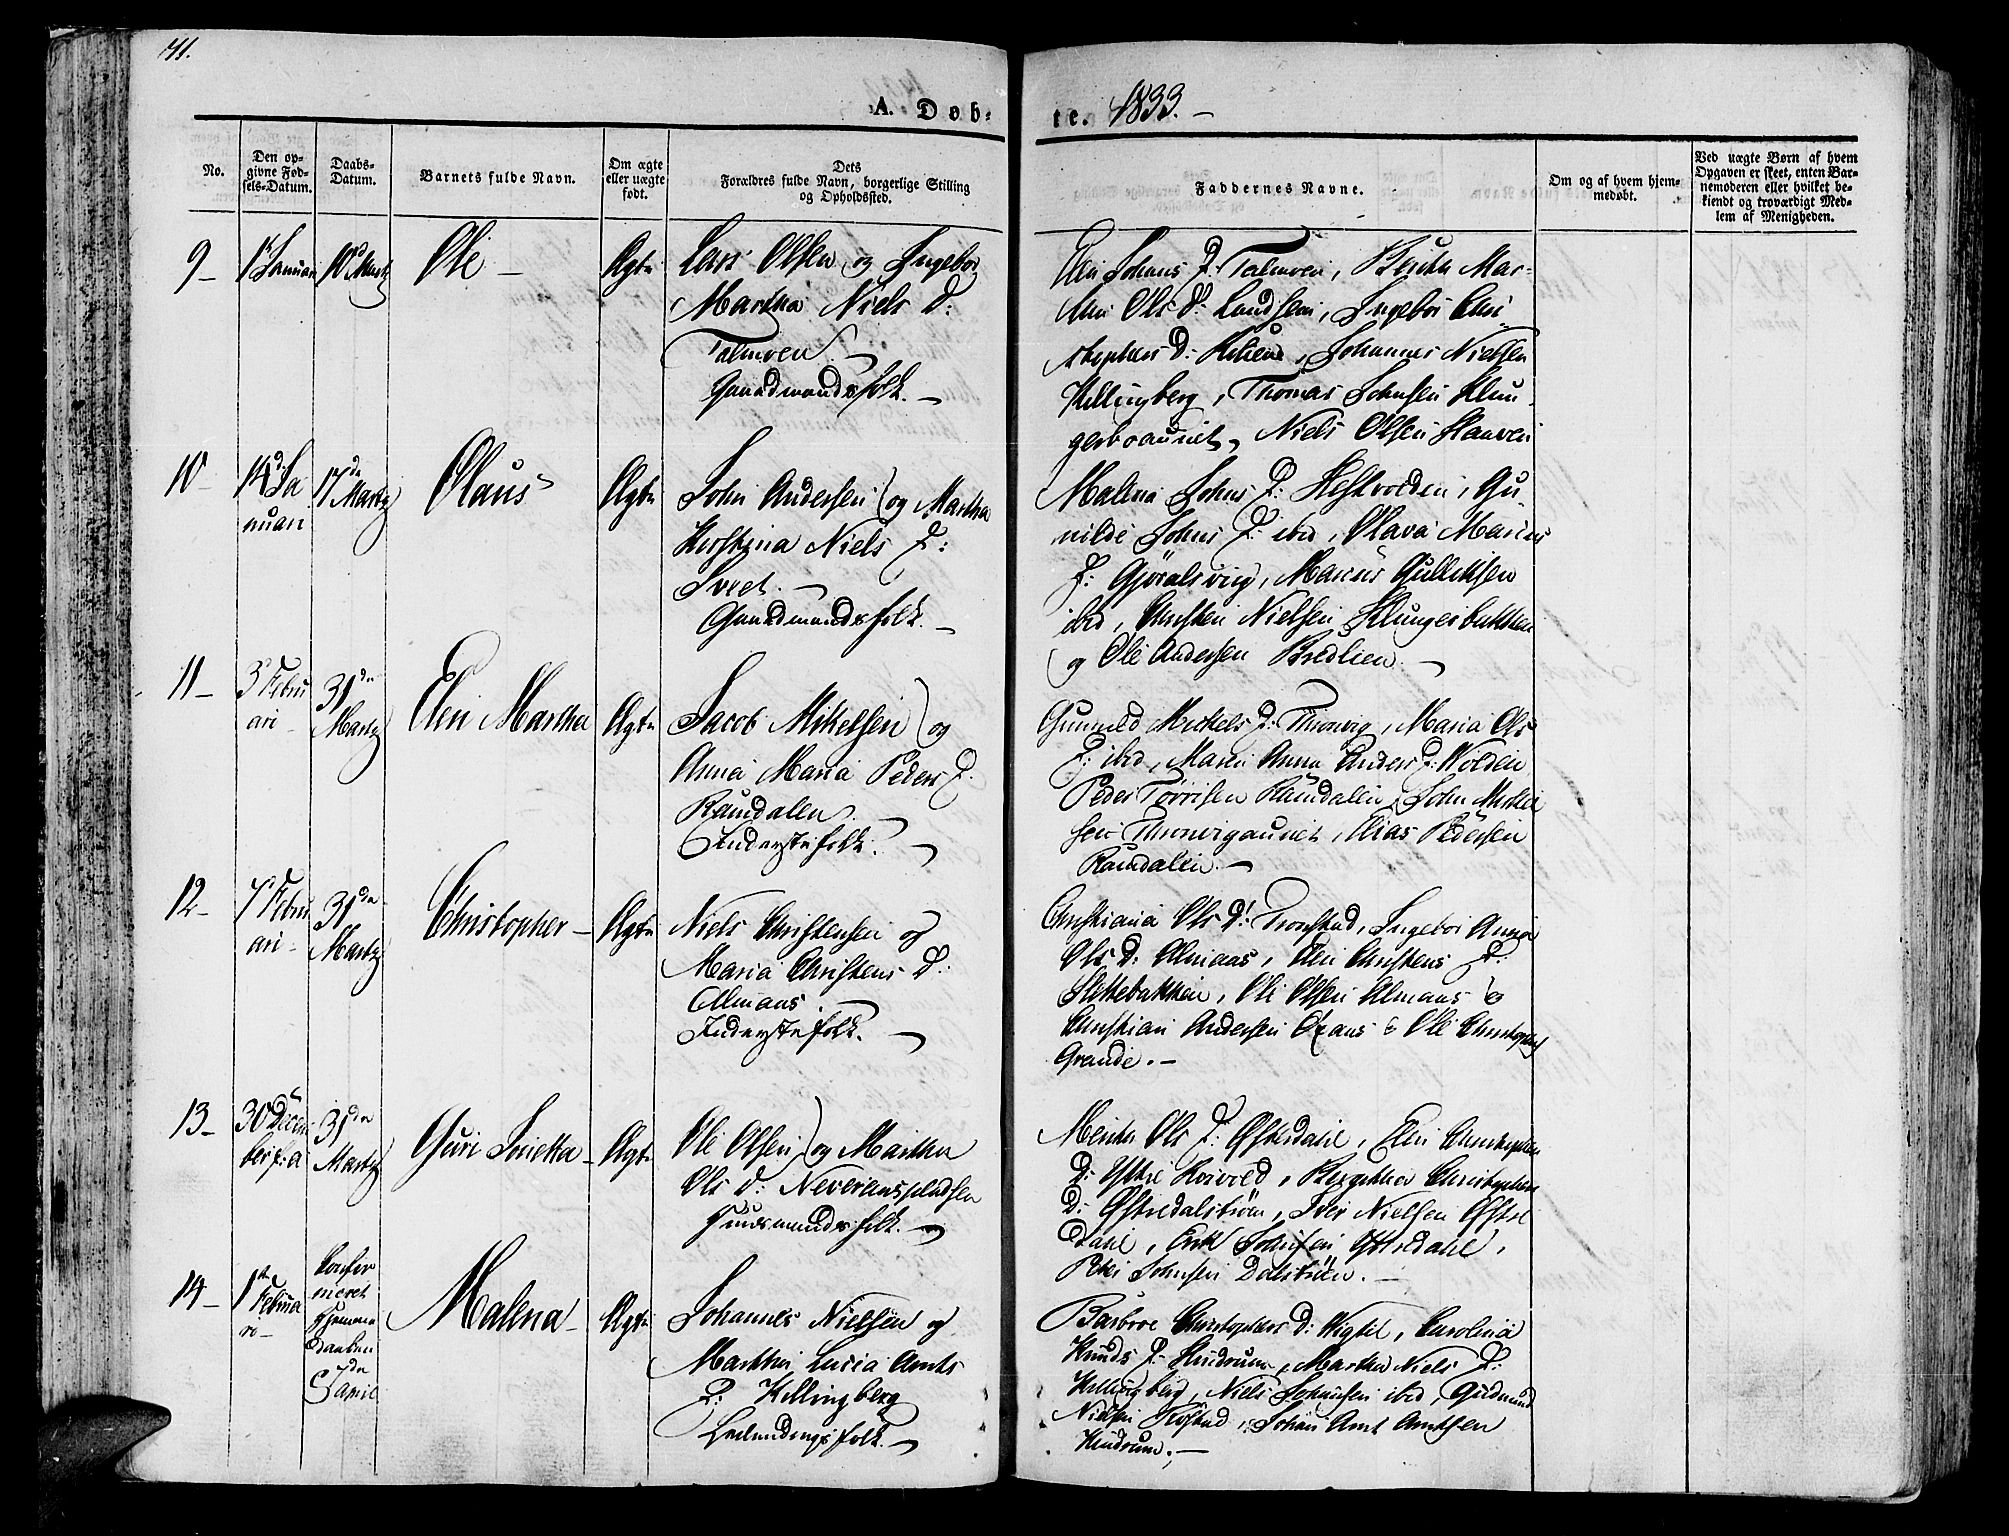 71.
A. Døb-
te. 1833. -
No.
Den op-
givne Fød-
sels-Datum.
Daabs-
Datum.
Barnets fulde Navn.
Om ægte
eller uægte
født.
Dets
Forældres fulde Navn, borgerlige Stilling
og Opholdssted.
Faddernes Navne.
Om og af hvem hjem-
medøbt.
Ved uægte Børn af hvem
Opgaven er skeet, enten Bar-
nemoderen eller hvilket be-
kiendt og troværdigt Med-
lem af Menigheden.
9 - 1 Januari 10 Martz Ole - Ægte Lars Olsen og Ingebor
Martha Niels D:
Talmoen. -
Gaardmandsfolk. -
Elen Johns D: Talmoen, Berith Mar-
tha Ols D: Lundseu, Ingebor Chri
stophers D: , Johannes Nielsen
Killingberg, Thomas Johnsen Klun
gerboaunet, Niels Olsen Hauven
10 - 14d Ja
nuari
17de
Martz
Olaus Ægte John Andersen og Martha
Kirstina Niels D:
Sveet. -
Gaardmandsfolk. -
Malena Johns D: Hestvolden, Gu
nilde Johns D: ibd, Olava Marius
D: Gjöralsvig, Marius Gulliksen
ibd, Christen Nielsen Klungerbakken
og Ole Andersen Bredlien. -
11 - 3 Febru
ari -
31de
Martz
Elen Martha Ægte Jacob Mikelsen og
Anna Maria Peders D:
Ramdalen. -
Inderstefolk. -
Gunild Mikkels D: Thronvig, Maria Ols
D: ibd, Maren Anna Anders D: Wolden
Peder Torrisen Ramdalen, John Mikkel
sen Thronvigaunet, Elias Pedersen
Ramdalen. -
12 - 7 Febru
ari -
31de
Martz
Christopher - Ægte Niels Christensen og
Maria Christens D:
Almaas. -
Inderstefolk. -
Christiana Ols D: Tronstad, Ingebor Anna
Ols D: Almaas, Elen Christens D:
Slettebakken, Ole Olsen Almaas &
Christian Andersen & Ole Christophers
Grande. -
13 - 30 Decem
ber f: a
31de
Martz
Guri Serietta - Ægte Ole Olsen og Martha
Ols D: Neveraaspladsen
Huusmandsfolk. -
Merith Ols D: Østerdahl, Elen Christophers
D: Ystre , Birgitha Christophers
D: Østredalström, Iver Nielsen Østre
Dahl, Erik Johnsen Østredahl,
Peter Johnsen Dalström. -
14 - 1st
Februa
ri -
Confir
meret
Hjemme
Daaben
7de
April
Malena - Ægte Johannes Nielsen og
Martha Lucia Arnts
D: Killingberg
-folk. -
Barbroe Christophers D: Vigtil, Carolina
Knuds D: Hindrum, Martha Niels D:
Killingberg, Niels Johansen ibd, Gudmund
Nielsen Tröstad, Johan Arnt Arntsen
Hindrum. -